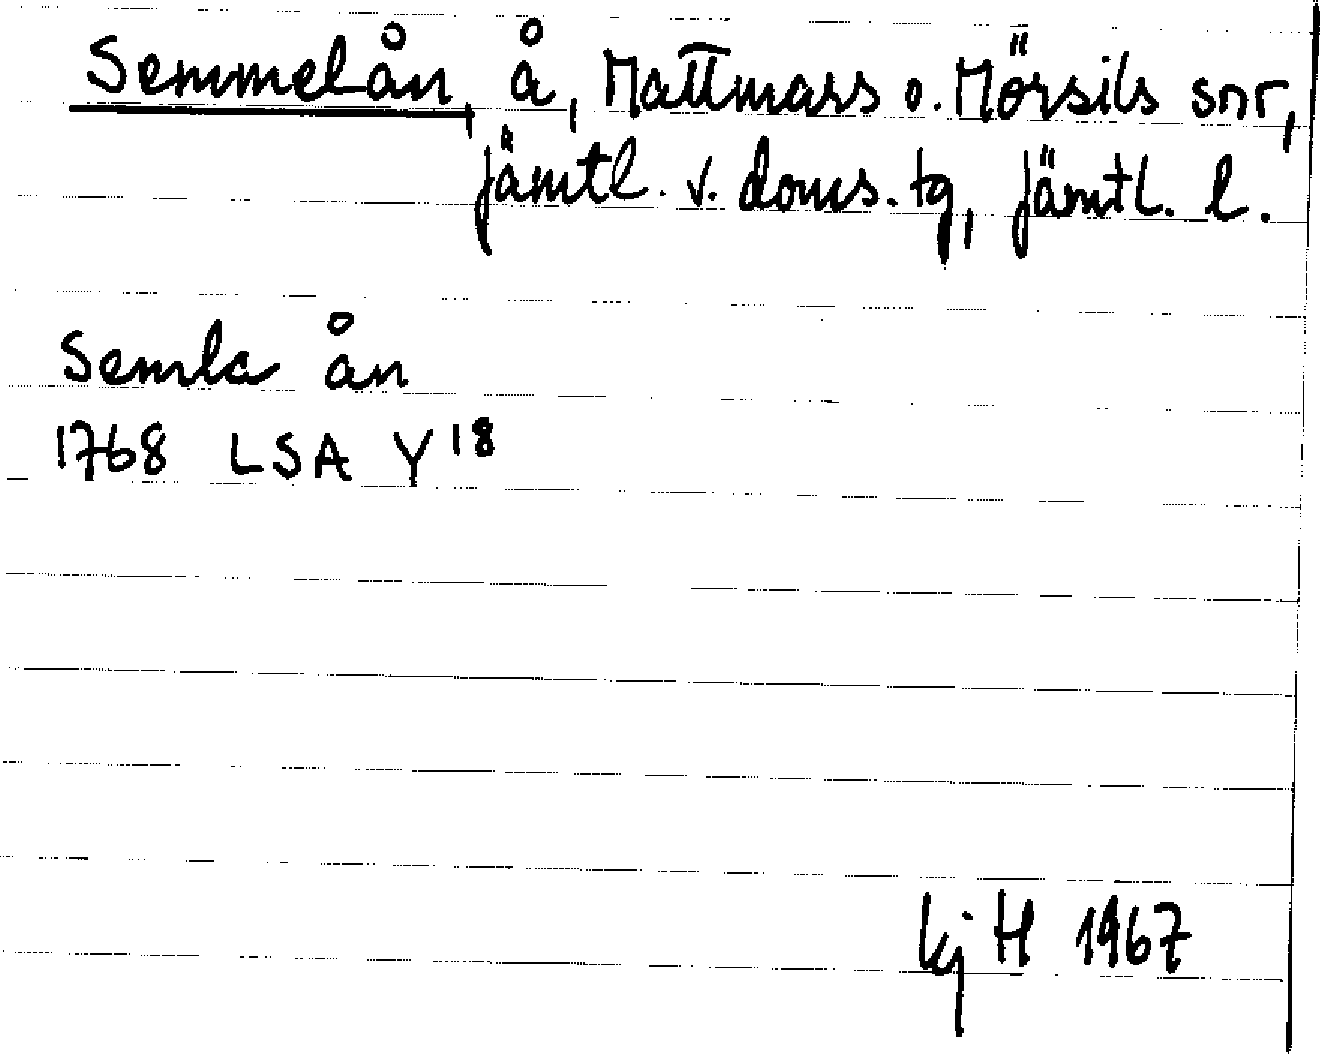 Semmelån, å, Mattmars o. Mörsils snr,
Jämtl. v. doms. tg, Jämtl. l.
Semla ån
1768 LSA Y 18
kj H 1967